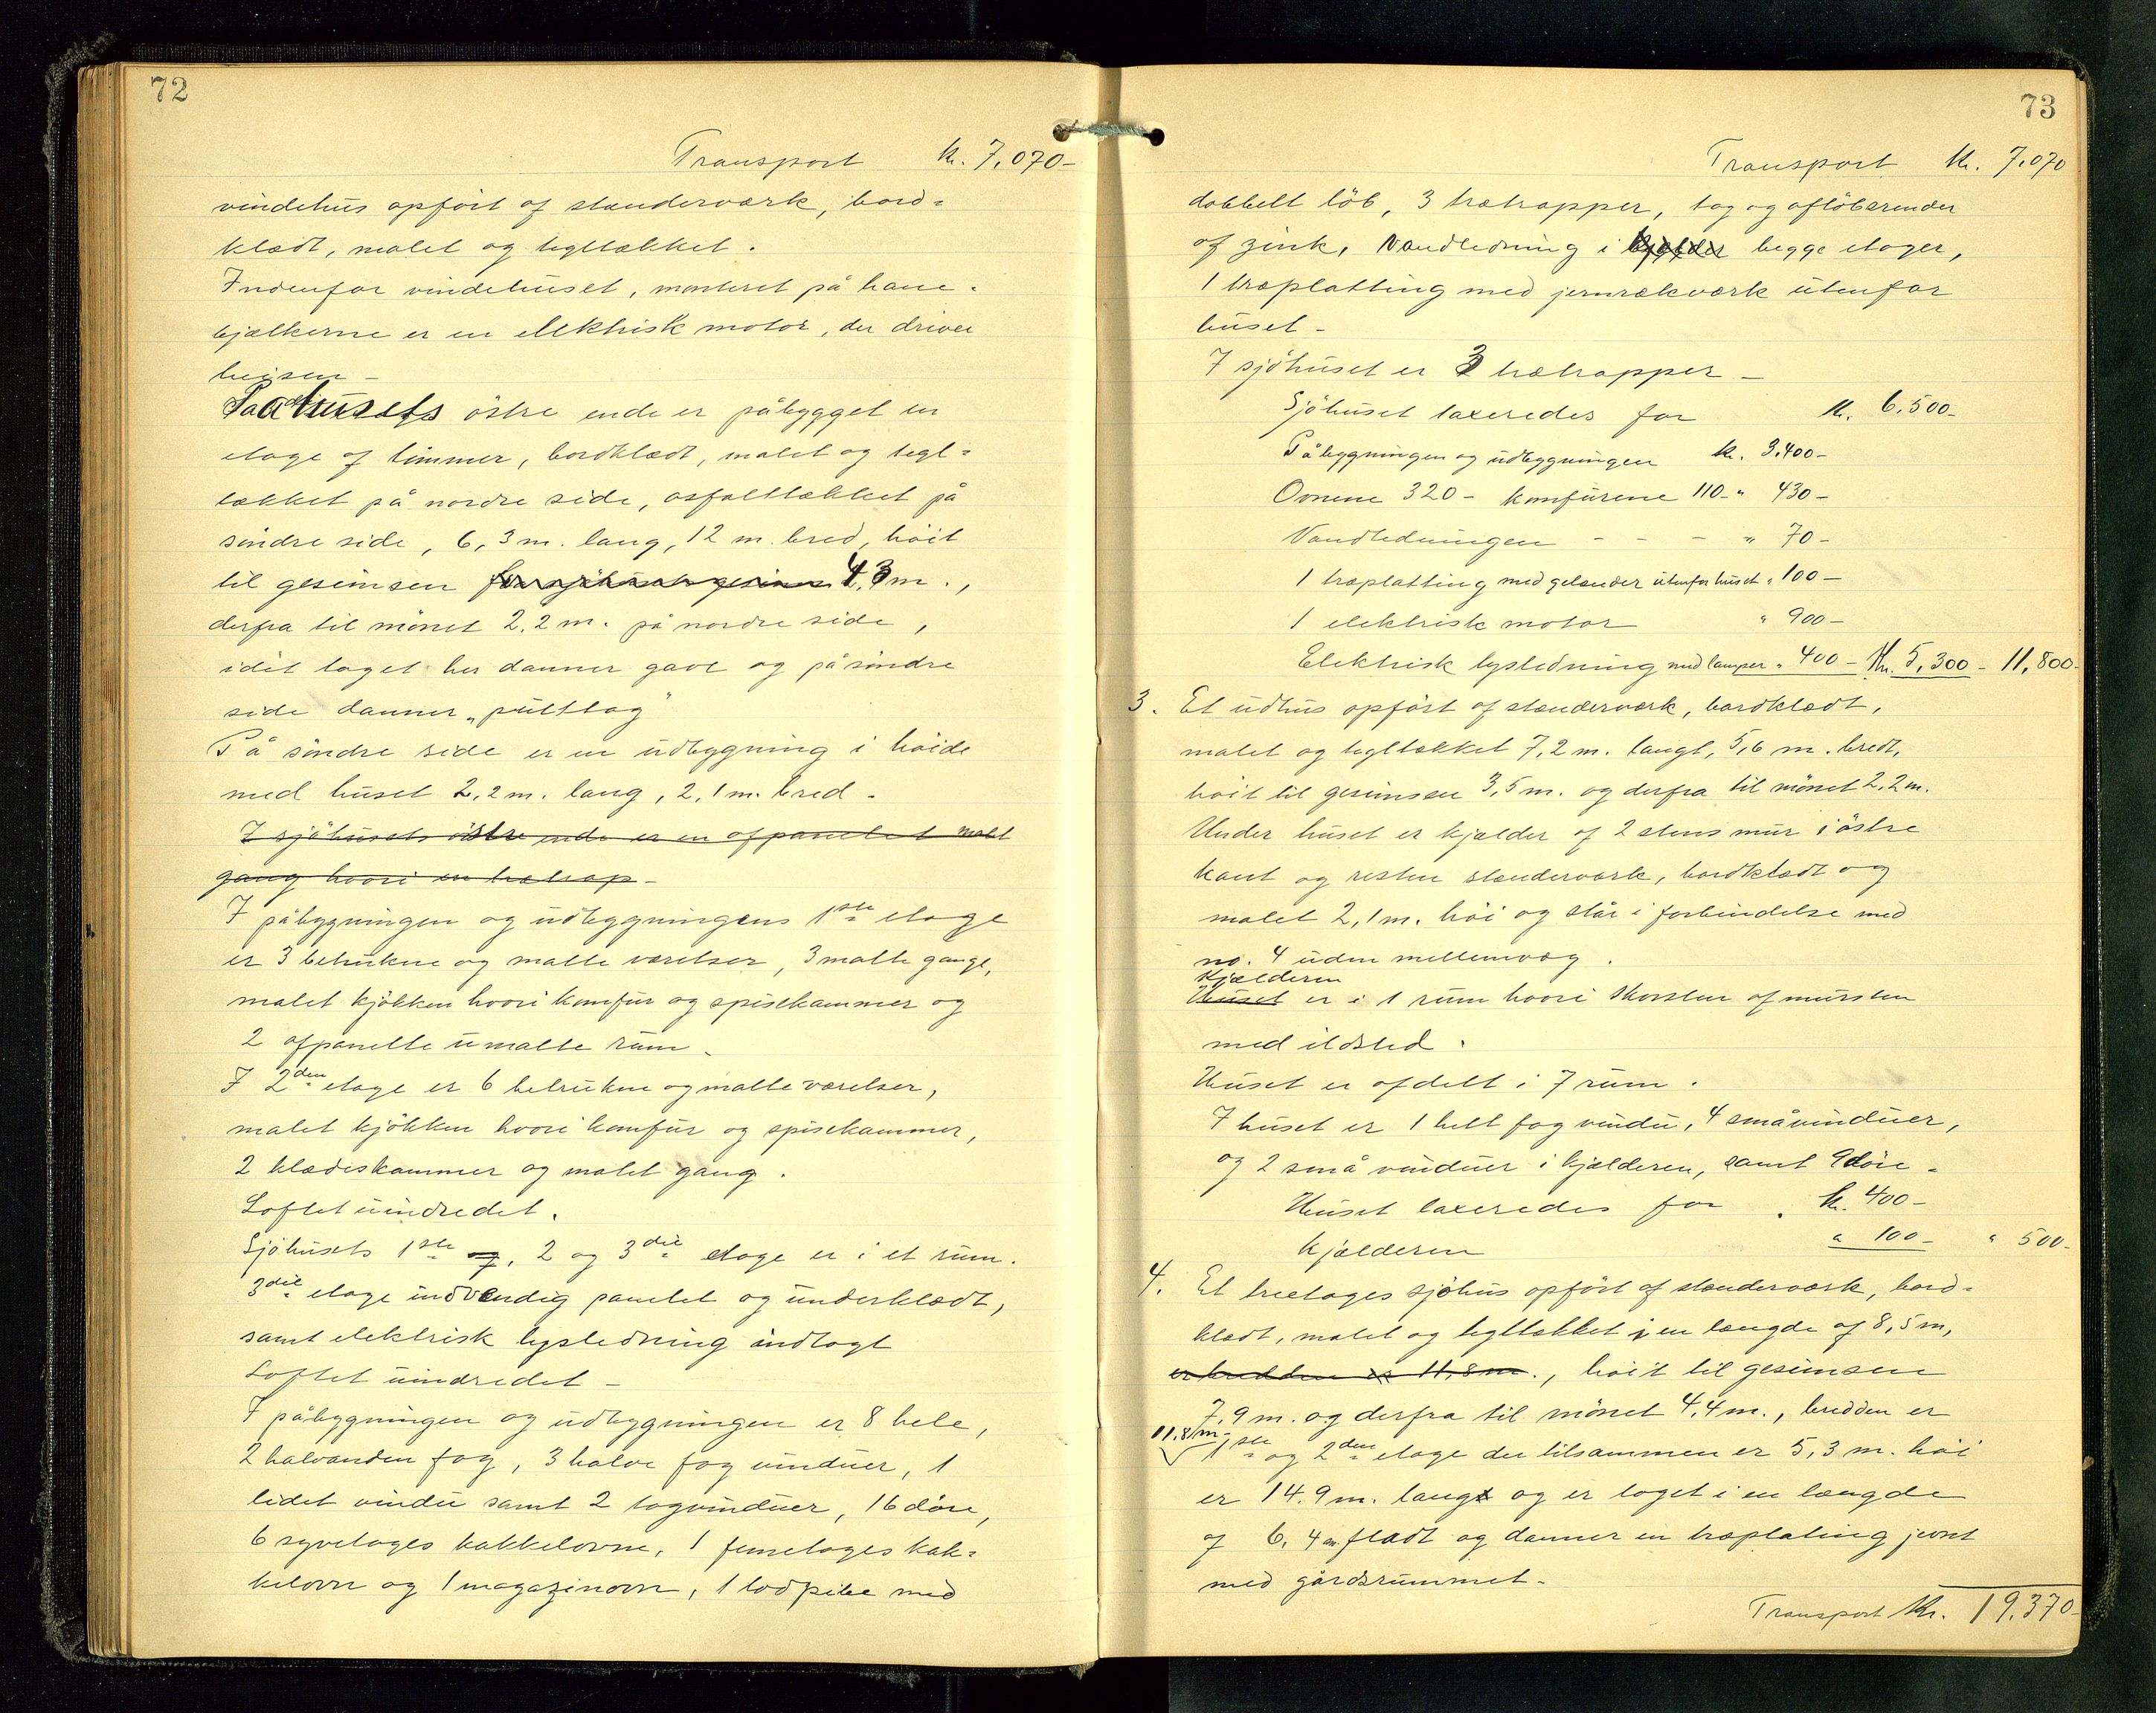 72
Transport kr. 7,070-
vindehus opført af standerværk, bord=
klædt, malet og tegltækket.
Indenfor vindehuset, monteret på hane=
bjælkerne er en elektrisk motor, der driver
heisen -
På husets østre ende er påbygget en
etage af timmer, bordklædt, malet og tegl=
tækket på nordre side, asfalttækket på
søndre side, 6,3 m. lang, 12 m. bred, höit
til gesimsen fra sjöhusets gesims 4,3 m.,
derfra til mönet 2,2 m. på nordre side,
idet taget her danner gavl og på søndre
side danner „pulttag”
På søndre side er en udbygning i høide
med huset 2,2 m. lang, 2,1 m. bred.
I sjöhusets østre ende er en afpanelet malt
gang hvori en trætrap-
I påbygningen og udbygningens 1ste etage
er 3 betrukne og malte værelser, 3 malte gange,
malet kjökken hvori komfur og spisekammer og
2 afpanelte umalte rum.
I 2den etage er 6 betrukne og malte værelser,
malet kjökken hvori komfur og spisekammer,
2 klædeskammer og malet gang.
Loftet uindredet.
Sjöhusets 1ste og, 2 og 3die etage er i et rum.
3die etage indvendig panelet og underklædt,
samt elektrisk lysledning indlagt
Loftet uindredet -
I påbygningen og udbygningen er 8 hele,
2 halvanden fag, 3 halve fag vinduer, 1
lidet vindu samt 2 tagvinduer, 16 døre,
6 syvetages kakkelovne, 1 femetages kak=
kelovn og 1 magazinovn, 1 lodpibe med
73
Transport kr. 7,070
dobbelt löb, 3 trætrapper, tag og aflöbsrender
af zink, Vandledning i kjælder begge etager,
1 træplatting med jernrækværk utenfor
huset -
I sjöhuset er 3 trætrapper -
Sjöhuset taxeredes for kr. 6.500-
Påbygningen og udbygningen kr. 3.400-
Ovnene 320- komfurene 110- " 430-
Vandledningen - - - " 70-
1 træplatting med gelænder utenfor huset " 100-
1 elektrisk motor " 900-
Elektrisk lysledning med lamper " 400- Kr. 5,300- 11,800-
3. Et udhus opført af standerværk, bordklædt,
malet og tegltækket 7,2 m. langt, 5,6 m. bredt,
höit til gesimsen 3,5 m. og derfra til mönet 2,2 m.
Under huset er kjælder af 2 stens mur i østre
kant og resten standerværk, bordklædt og
malet 2,1 m. höi og står i forbindelse med
no. 4 uden mellemvæg.
Kjælderen
Huset er i 1 rum hvori skorsten af mursten
med ildsted.
Huset er afdelt i 7 rum.
I huset er 1 helt fag vindu, 4 småvinduer,
og 2 små vinduer i kjælderen, samt 9 döre-
Huset taxeredes for kr. 400-
Kjælderen " 100- " 500-
4. Et treetages sjöhus opført af standerværk, bord=
klædt, malet og tegltækket i en længde af 8,5 m,
er bredden er 11,8 m., höit til gesimsen
7,9 m. og derfra til mönet 4,4 m., bredden er
11.8 m-
1ste og 2den etage der tilsammen er 5,3 m. höi
er 14.9 m. langt og er taget i en længde
af 6,4 m. fladt og danner en træplatting jevnt
med gårdsrummet-
Transport Kr. 19.370-